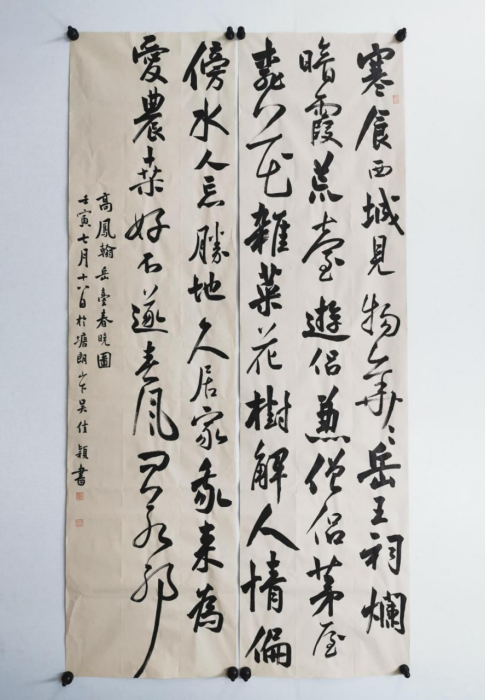 寒食西城見物華岳王祠爛
暗霞荒臺遊侶兼僧侶茅屋
花雜菜花樹解人情偏
傍水人忘勝地久居家我来為
愛農桑好不逐春風問若邪
高鳳翰岳臺春晓圖
壬寅七月十八日於塘朗山下吴佳穎書